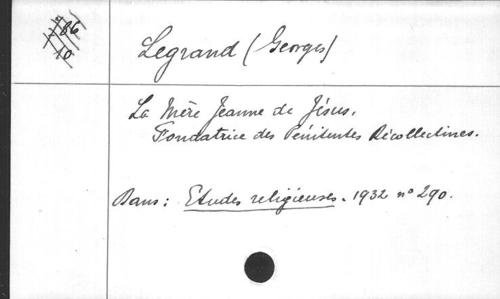 Legrand (Georges)
La Mère Jeanne de Jésus,
Fondatrice des Pénitentes Récollectines.
Dans : Etudes religieuses. 1932 n° 290.